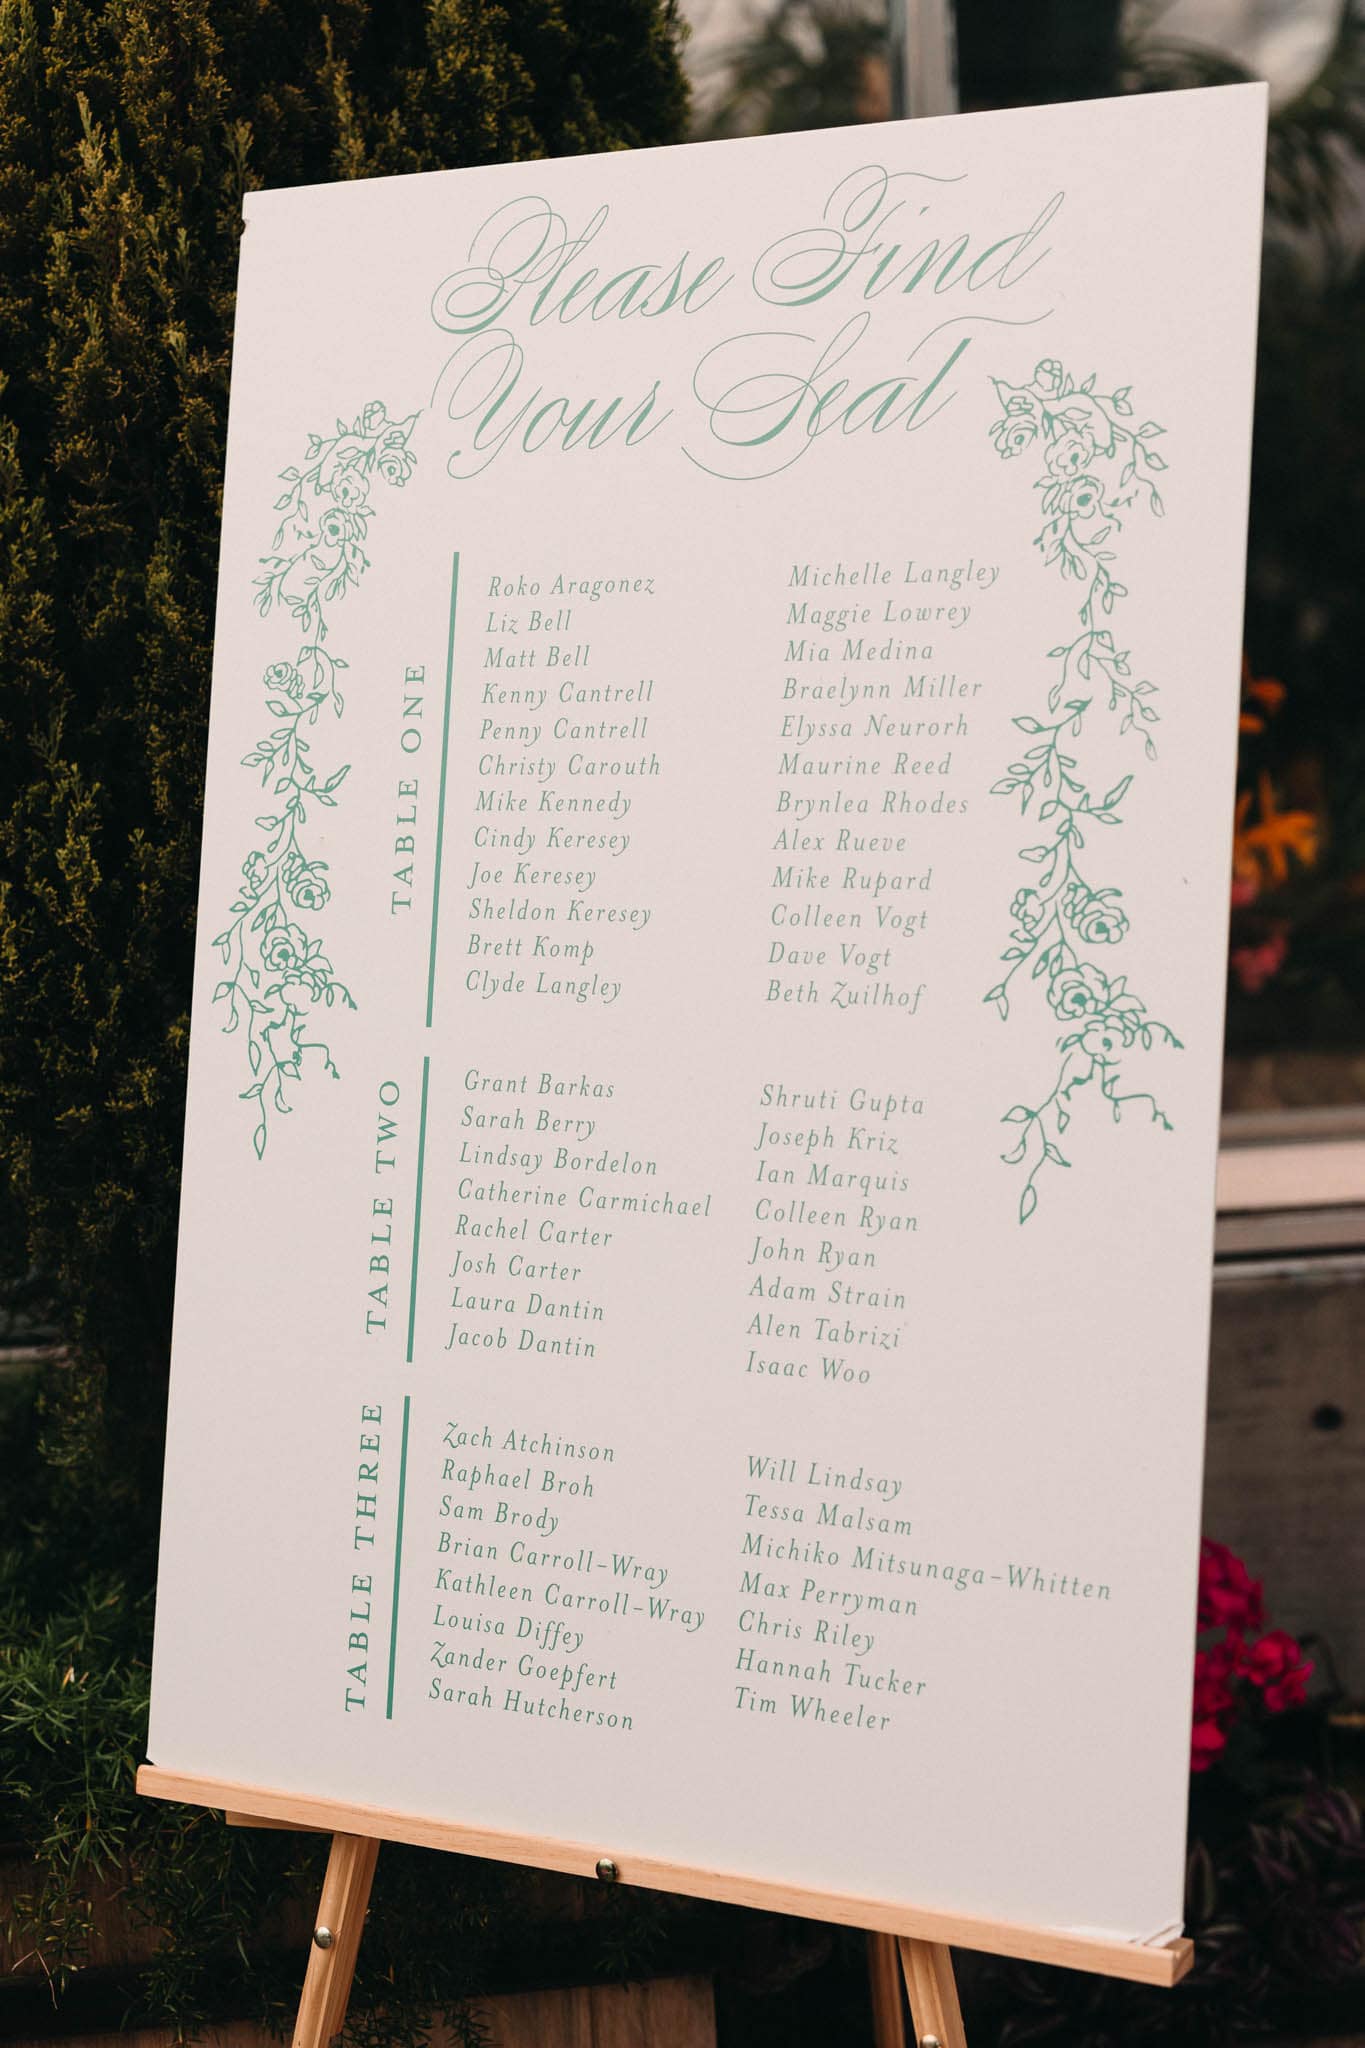 Please Find
Your Seat
TABLE ONE
Roko Aragonez
Liz Bell
Matt Bell
Kenny Cantrell
Penny Cantrell
Christy Carouth
Mike Kennedy
Cindy Keresey
Joe Keresey
Sheldon Keresey
Brett Komp
Clyde Langley
Michelle Langley
Maggie Lowrey
Mia Medina
Braelynn Miller
Elyssa Neurorh
Maurine Reed
Brynlea Rhodes
Alex Rueve
Mike Rupard
Colleen Vogt
Dave Vogt
Beth Zuilhof
TABLE TWO
Grant Barkas
Sarah Berry
Lindsay Bordelon
Catherine Carmichael
Rachel Carter
Josh Carter
Laura Dantin
Jacob Dantin
Shruti Gupta
Joseph Kriz
Ian Marquis
Colleen Ryan
John Ryan
Adam Strain
Alen Tabrizi
Isaac Woo
TABLE THREE
Zach Atchinson
Raphael Broh
Sam Brody
Brian Carroll-Wray
Kathleen Carroll-Wray
Louisa Diffey
Zander Goepfert
Sarah Hutcherson
Will Lindsay
Tessa Malsam
Michiko Mitsunaga-Whitten
Max Perryman
Chris Riley
Hannah Tucker
Tim Wheeler